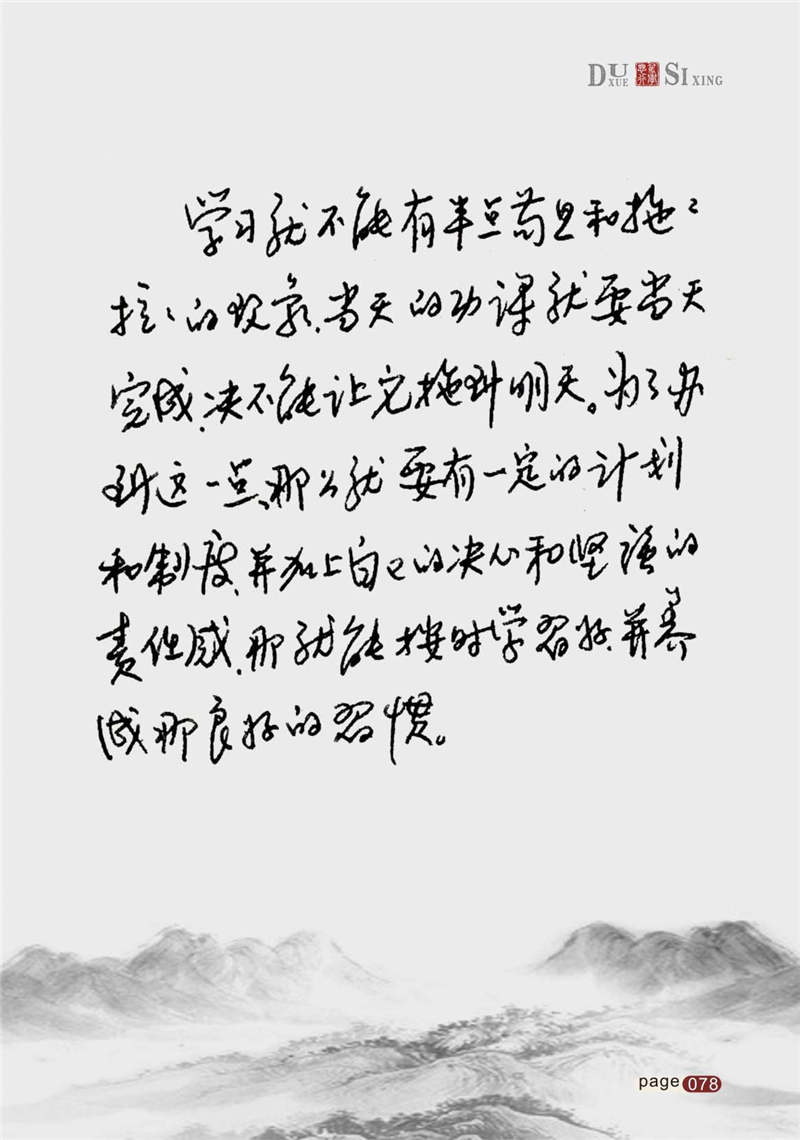 DU XUE SI XING
学习就不能有半点苟且和拖:
拉:的现象,当天的功课就要当天
完成,决不能让它拖到明天。为了办
到这一点,那么就要有一定的计划
和制度,并加上自己的决心和坚强的
责任感,那就能按时学习好,并养
成那良好的习惯。
page 078